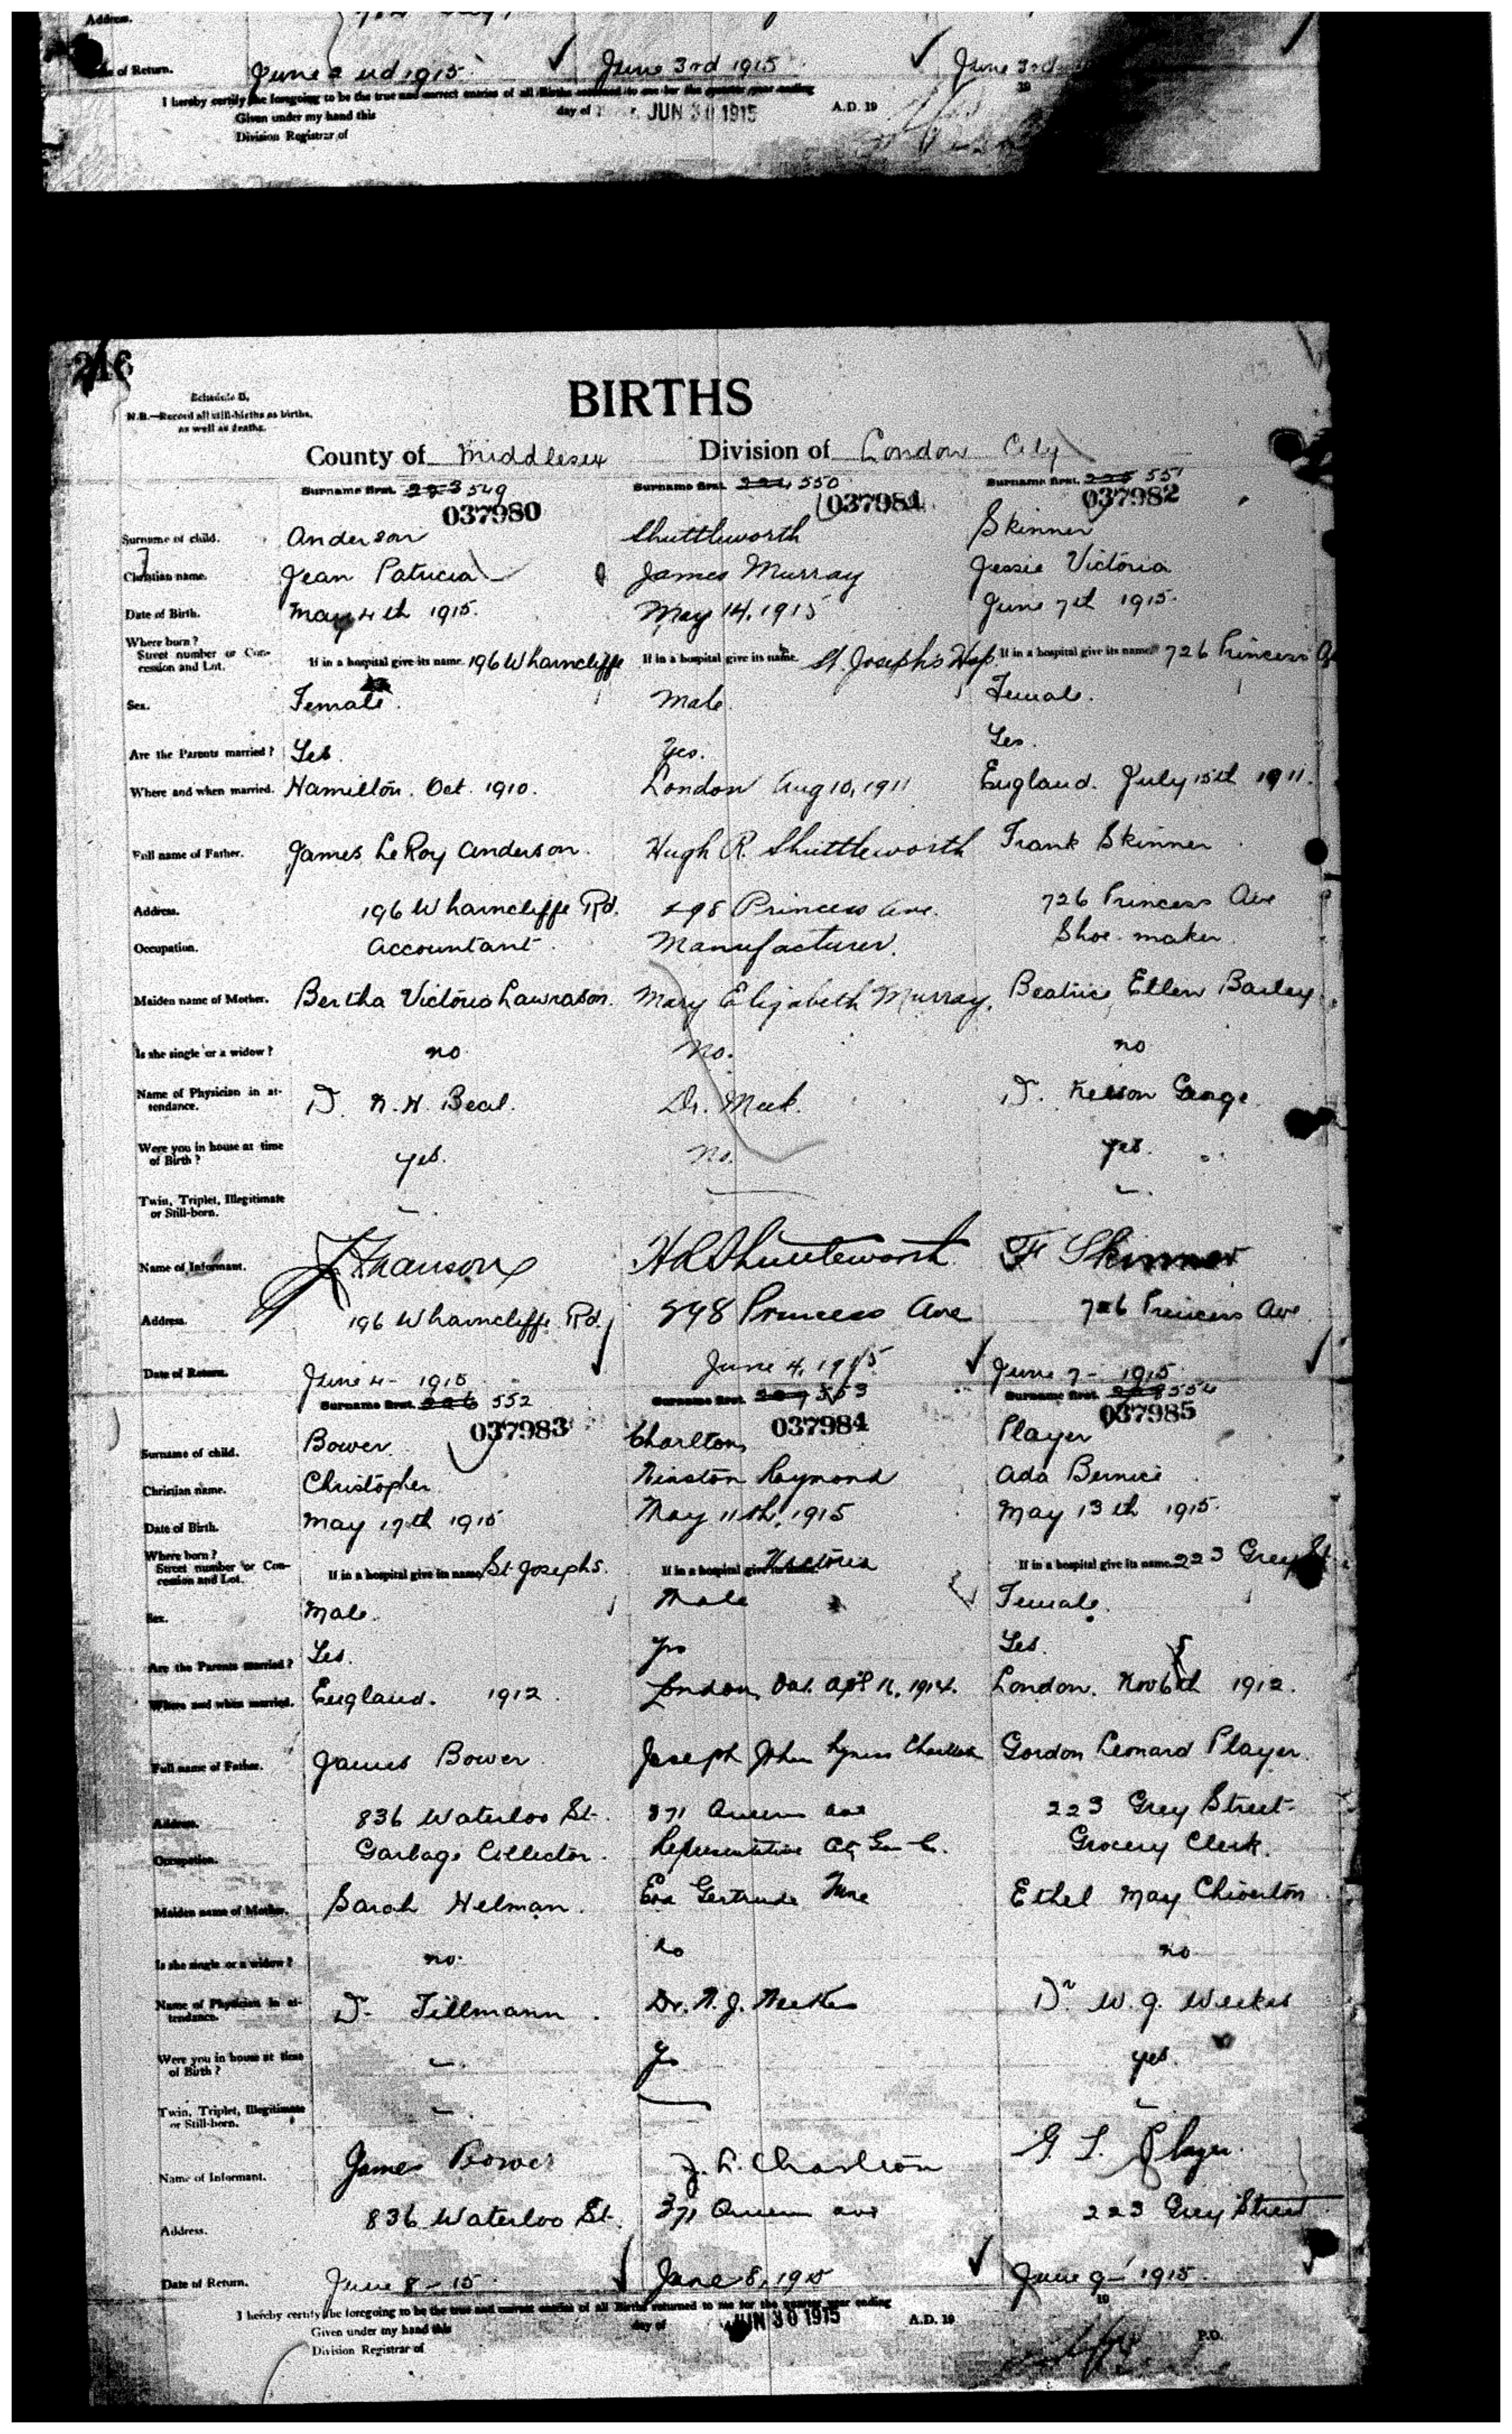 Address.
of Return. June 2nd 1915 June 3rd 1915 June 3rd
I hereby certify the foregoing to be the true and correct entries of all Births returned to me for the quarter year ending
Given under my hand this day of JUN 30 1915 A.D. 19
Division Registrar of
216
Schedule B.
N.B.—Record all still-births as births,
as well as deaths.
BIRTHS
County of Middlesex Division of London City
Surname first. 223 549 Surname first. 224 550 Surname first. 225 551
037980 037981 037982
Surname of child. Anderson Shuttleworth Skinner
Christian name. Jean Patricia James Murray Jessie Victoria
Date of Birth. May 4th 1915. May 14, 1915 June 7th 1915.
Where born?
Street number or Con-
cession and Lot. If in a hospital give its name. 196 Wharncliffe If in a hospital give its name. St. Joseph's Hosp. If in a hospital give its name. 726 Princess
Sex. Female. Male. Female.
Are the Parents married? Yes. Yes. Yes.
Where and when married. Hamilton. Oct. 1910. London Aug 10, 1911 England. July 15th 1911.
Full name of Father. James LeRoy Anderson. Hugh R. Shuttleworth Frank Skinner
Address. 196 Wharncliffe Rd. 298 Princess Ave. 726 Princess Ave
Occupation. Accountant. Manufacturer. Shoe maker
Maiden name of Mother. Bertha Victoria Lawrason. Mary Elizabeth Murray. Beatrice Ellen Barley
Is she single or a widow? no no. no
Name of Physician in at-
tendance. Dr. N. H. Beal. Dr. Meek. Dr. Kelson George
Were you in house at time
of Birth? yes. no. yes.
Twin, Triplet, Illegitimate
or Still-born. –. — –.
Name of Informant. H R Shuttleworth F Skinner
Address. 196 Wharncliffe Rd. 298 Princess Ave 726 Princess Ave
Date of Return. June 4 – 1915 June 4, 1915 June 7 – 1915
Surname first. 226 552 Surname first. 227 553 Surname first. 228 554
037983 037984 037985
Surname of child. Bower Charlton Player
Christian name. Christopher Winston Raymond Ada Bernice
Date of Birth. May 17th 1915 May 11th, 1915 May 13th 1915.
Where born?
Street number or Con-
cession and Lot. If in a hospital give its name. St. Josephs. If in a hospital give its name. Victoria If in a hospital give its name. 223 Grey St
Sex. Male. Male Female.
Are the Parents married? Yes. Yes Yes.
Where and when married. England. 1912. London, Ont. Apl 16, 1914. London. Nov 6th 1912.
Full name of Father. James Bower. Joseph John Charlton Gordon Leonard Player.
Address. 836 Waterloo St. 371 Queens Ave 223 Grey Street
Occupation. Garbage Collector. Representative Grocery Clerk.
Maiden name of Mother. Sarah Helman. Eva Gertrude Ethel May Chiverton
Is she single or a widow? no. no no
Name of Physician in at-
tendance. Dr. Tillmann. Dr. W. J. Weekes Dr W. J. Weekes
Were you in house at time
of Birth? –. Yes yes.
Twin, Triplet, Illegitimate
or Still-born. –. — –
Name of Informant. James Bower J. L. Charlton G. L. Player.
Address. 836 Waterloo St. 371 Queens Ave 223 Grey Street
Date of Return. June 8 – 15 June 8, 1915 June 9 – 1915.
I hereby certify the foregoing to be the true and correct entries of all Births returned to me for the quarter year ending 19
Given under my hand this day of JUN 30 1915 A.D. 19
Division Registrar of P.O.